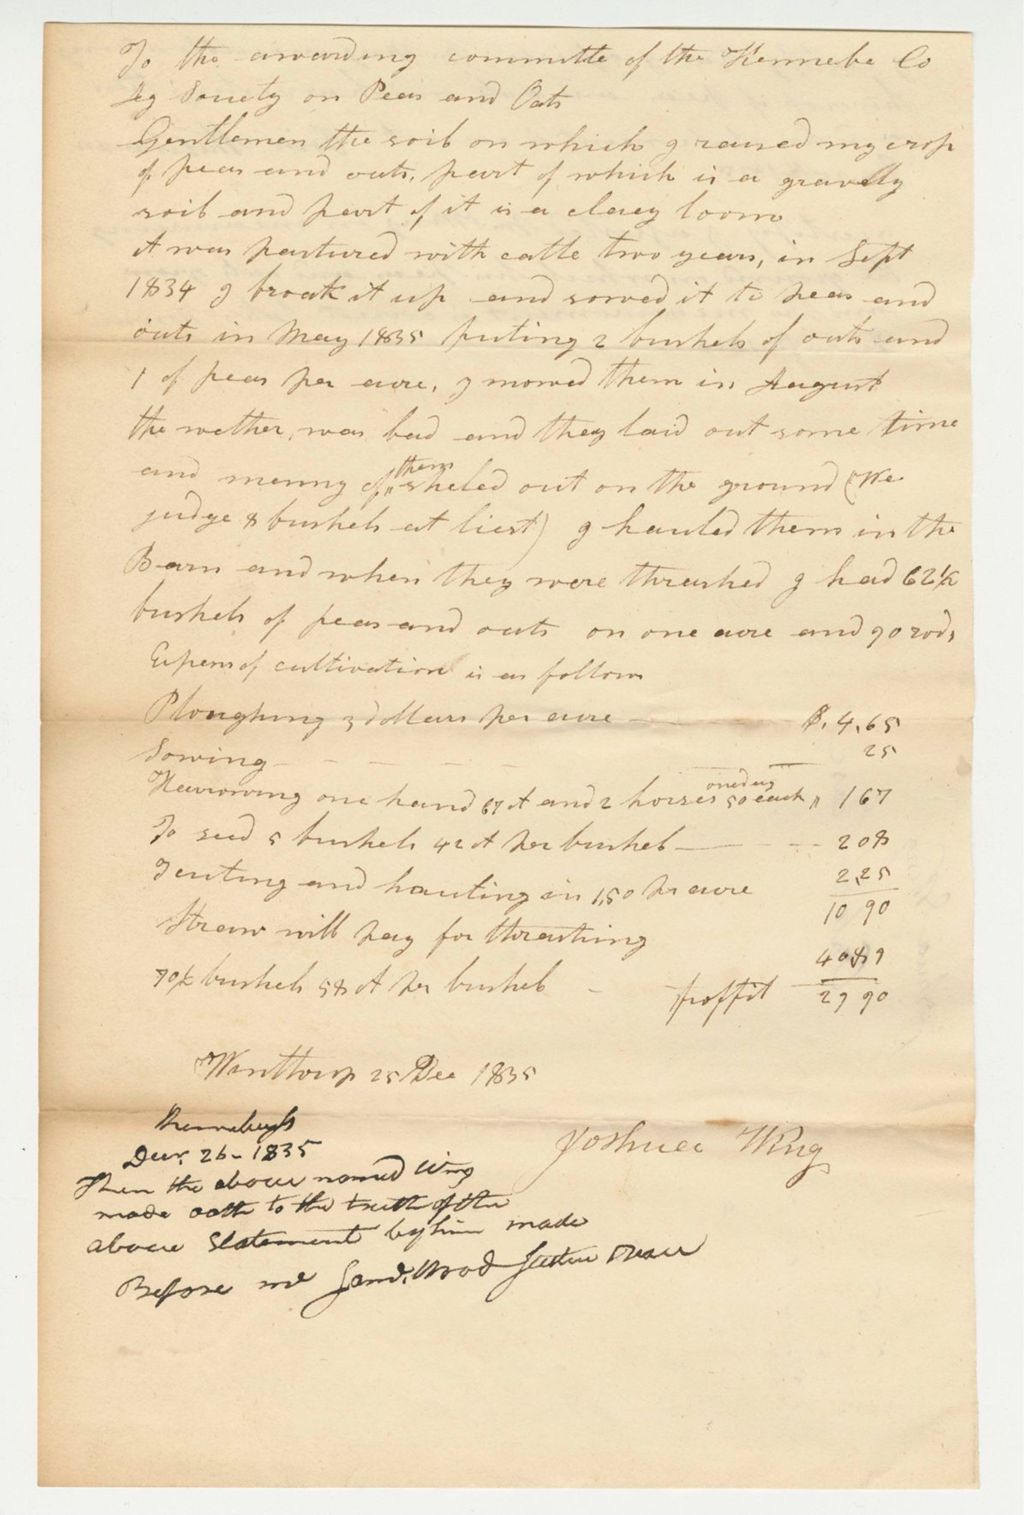 To the awarding committe of the Kennebe Co
Ag Society on Peas and Oats
Gentlemen the soil on which I raised my crop
of peas and oats, part of which is a gravelly
soil and part of it is a claey loom
it was pastured with catle two years, in Sept
1834 I broak it up and sowed it to peas and
oats in May 1835 puting 2 bushels of oats and
1 of peas per acre, I mowed them in August
the wether, was bad and they laid out some time
and menny of them sheled out on the ground (We
judge 8 bushels at liest) I hauled them in the
Barn and when they were thrashed I had 62½
bushels of peas and oats on one acre and 90 rods
Expens of cultivation is as follows
Ploughing 3 dollars per acre — $. 4,65
Sowing - - - - 25
Harrowing one hand 67 ct and 2 horses one day 50 each " 167
To seed 5 bushels 42 ct per bushel — - - 208
Geuting and hauling in 1,50 pr acre 2,25
10 90
Straw will pay for thrashing
70½ bushels 58 ct per bushel - 40 89
proffit 29 90
Winthrop 25 Dec 1835
Joshuee Wing
Kennebec ss
Decr. 26 - 1835
Then the above named Wing
made oath to the truth of the
above statement by him made
Before me Saml. Wood Justice Peace